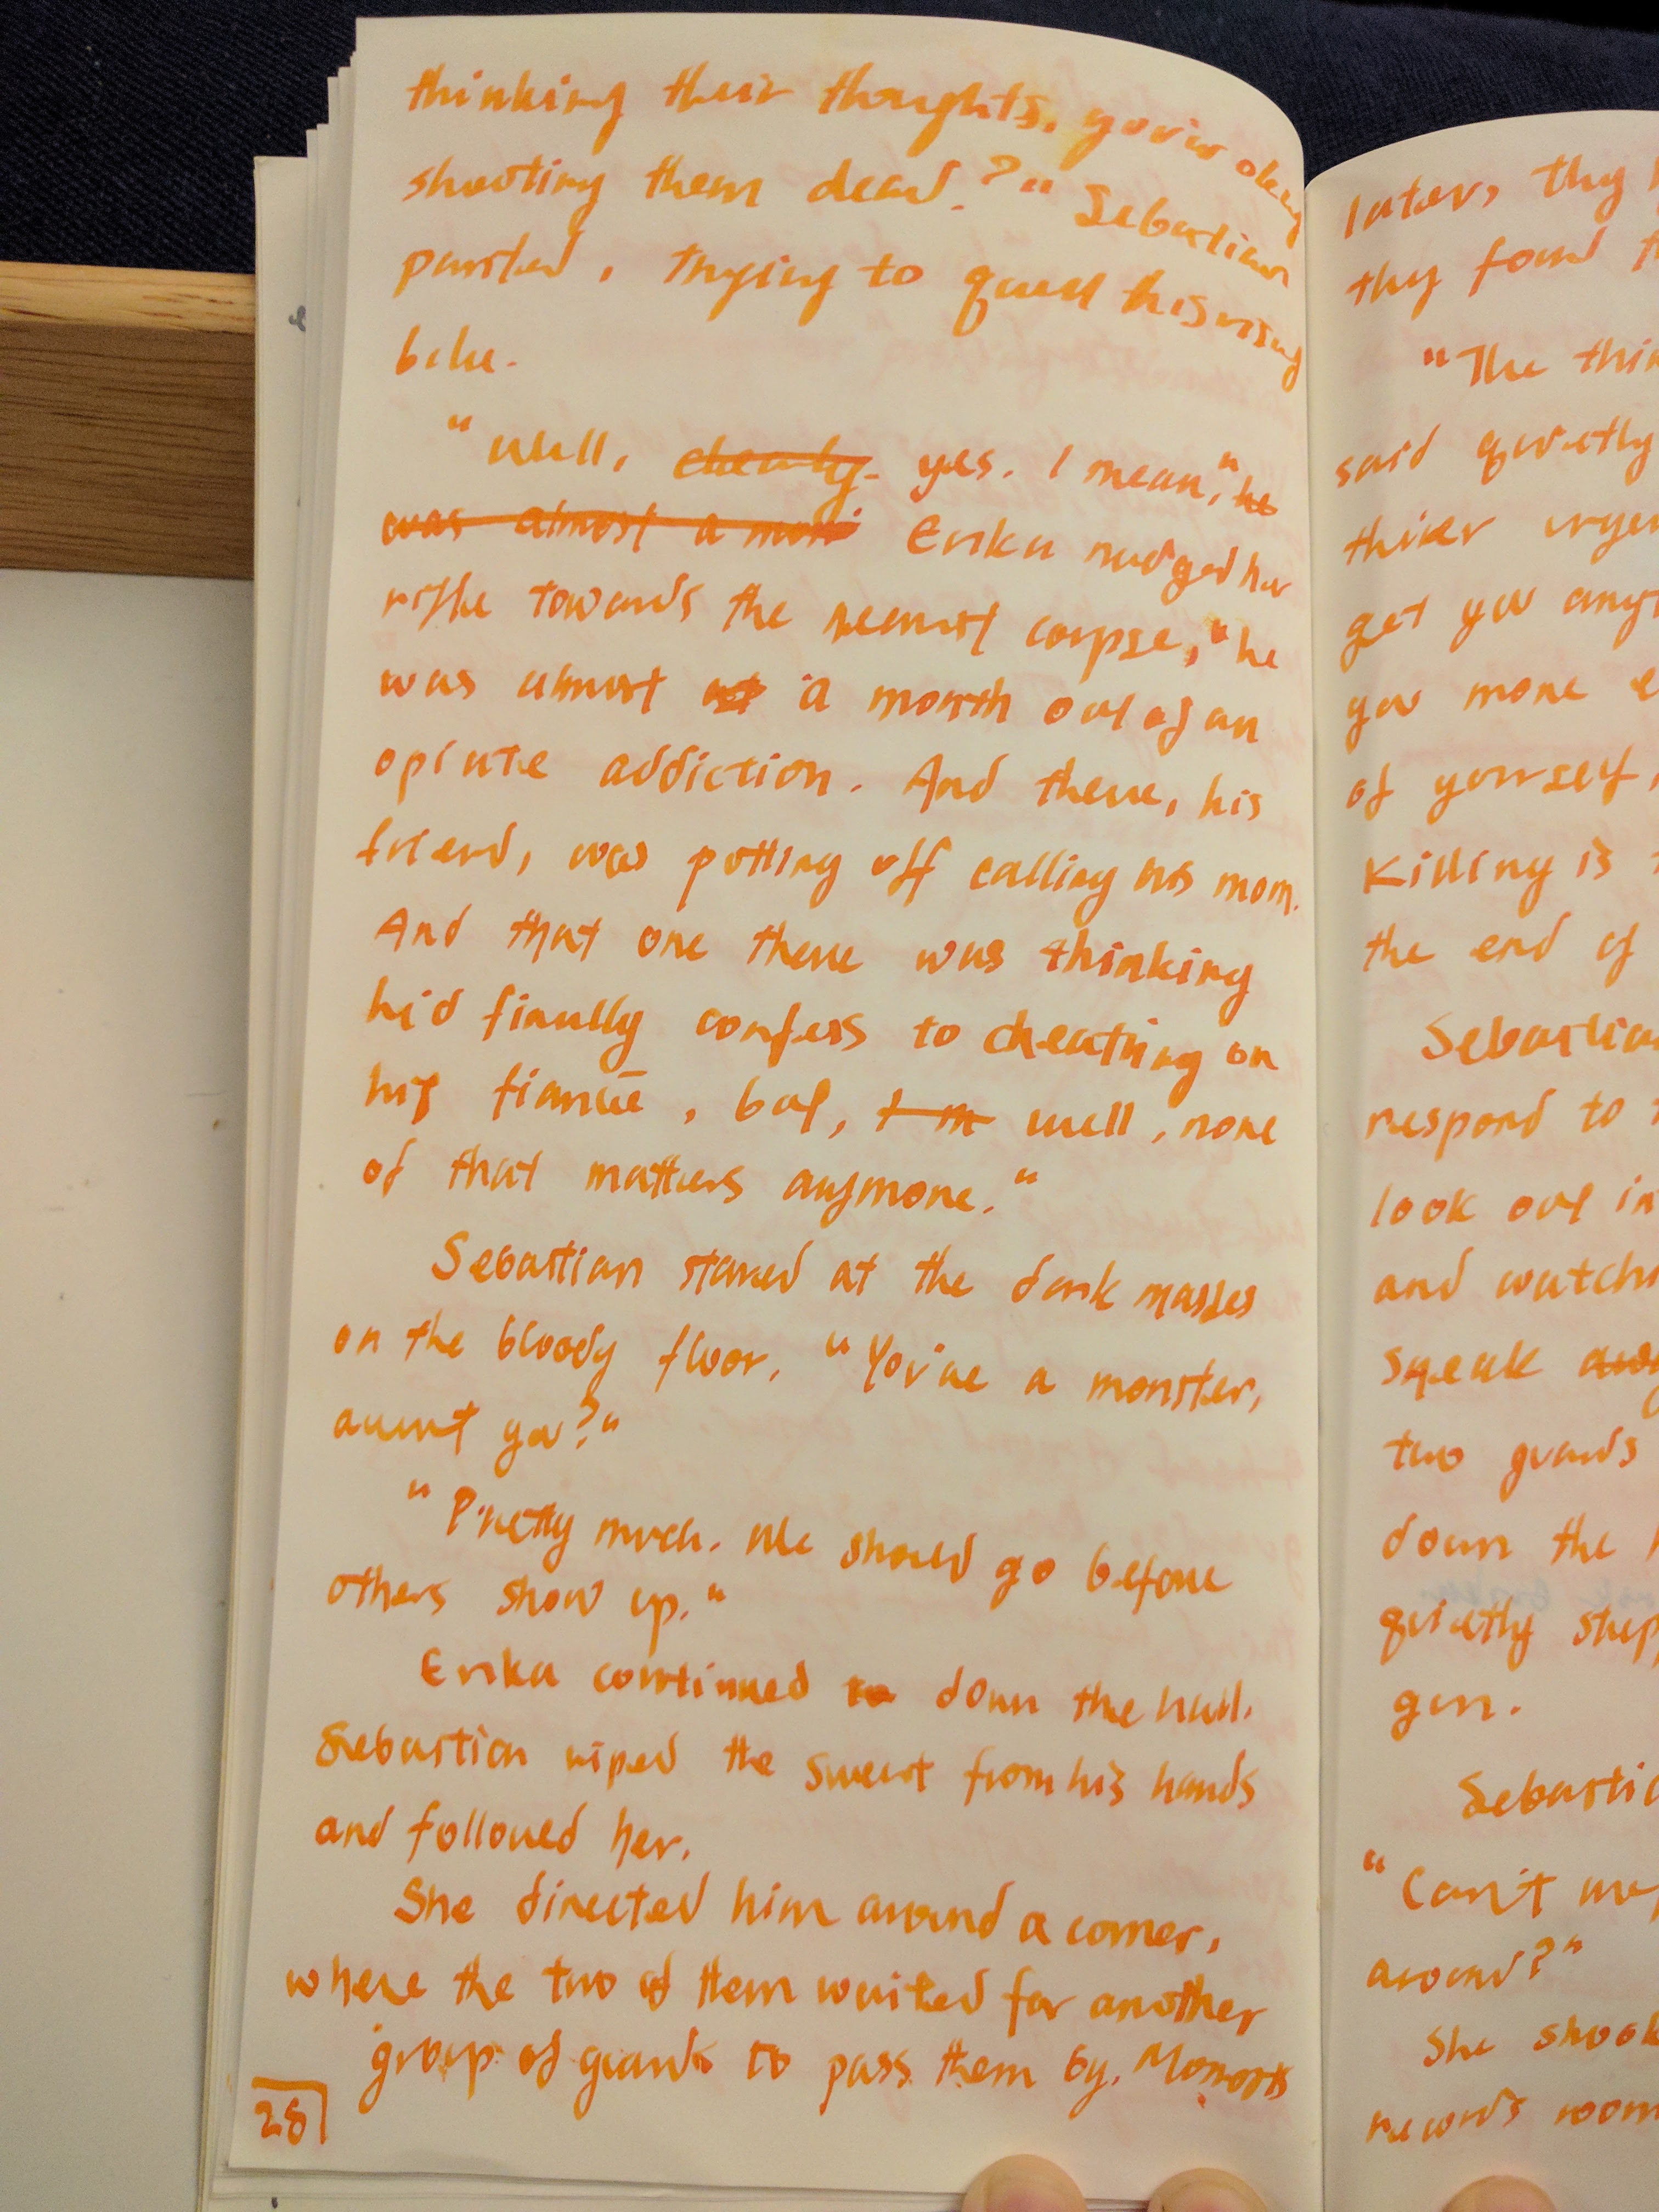 thinking their thoughts, you're okay
shooting them dead?" Sebastian
panted, trying to quell his rising
bile.
"Well, clearly yes. I mean," he
was almost a mon Erika nudged her
rifle towards the nearest corpse, "he
was almost a month out of an
opiate addiction. And there, his
friend, was putting off calling his mom.
And that one there was thinking
he'd finally confess to cheating on
his fiancée, but, I m well, none
of that matters anymore."
Sebastian stared at the dark masses
on the bloody floor. "You're a monster,
aren't you?"
"Pretty much. We should go before
others show up."
Erika continued to down the hall.
Sebastian wiped the sweat from his hands
and followed her.
She directed him around a corner,
where the two of them waited for another
group of guards to pass them by. Moments
28
later, they
they found
"The
said quietly
get you
you more
of yourself,
Killing is
the end of
Sebastian
respond to
look out
and
speak
two guards
down the
quietly
gun.
"Can't
around?"
She shook
records room